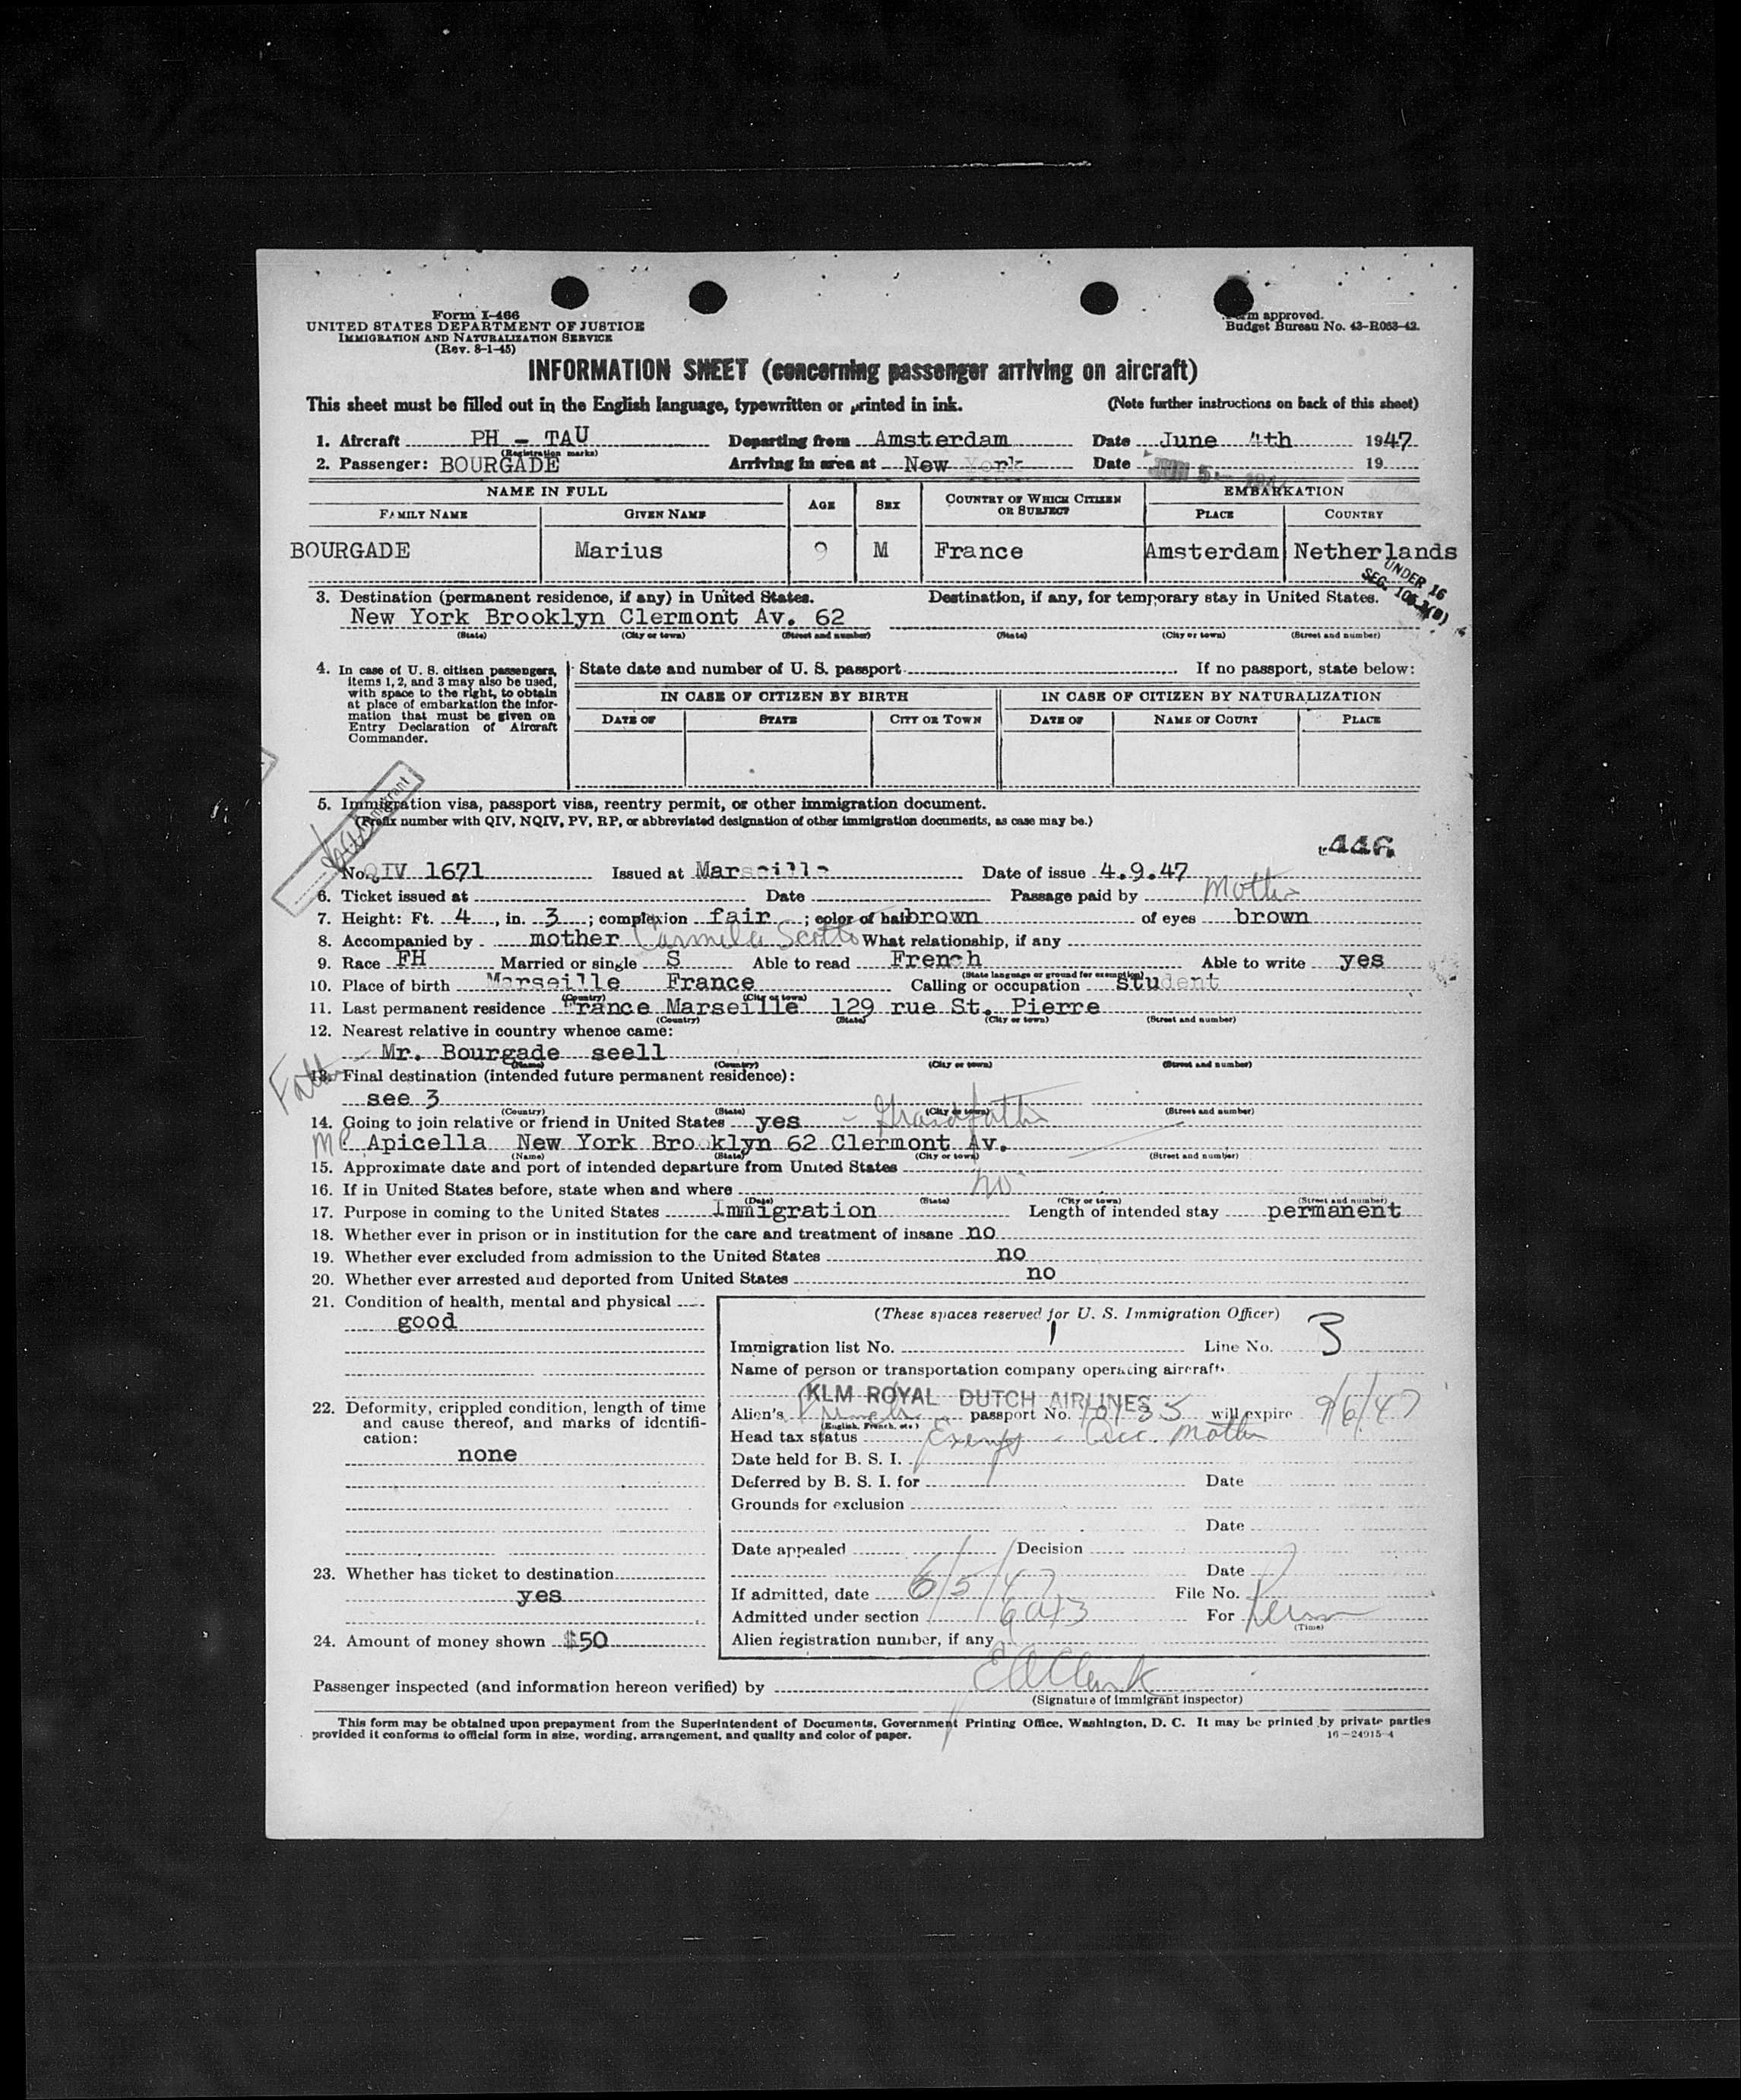 Form I-466
UNITED STATES DEPARTMENT OF JUSTICE
IMMIGRATION AND NATURALIZATION SERVICE
(Rev. 8-1-45)
approved.
Budget Bureau No. 43-R063-42.
INFORMATION SHEET (concerning passenger arriving on aircraft)
This sheet must be filled out in the English language, typewritten or printed in ink. (Note further instructions on back of this sheet)
1. Aircraft PH - TAU Departing from Amsterdam Date June 4th 1947
(Registration marks)
2. Passenger: BOURGADE Arriving in area at New York Date JUN 5 19
NAME IN FULL AGE SEX COUNTRY OF WHICH CITIZEN OR SUBJECT EMBARKATION
FAMILY NAME GIVEN NAME PLACE COUNTRY
BOURGADE Marius 9 M France Amsterdam Netherlands
UNDER 16
SEC.
3. Destination (permanent residence, if any) in United States. Destination, if any, for temporary stay in United States.
New York Brooklyn Clermont Av. 62
(State) (City or town) (Street and number) (State) (City or town) (Street and number)
4. In case of U. S. citizen passengers, items 1, 2, and 3 may also be used, with space to the right, to obtain at place of embarkation the information that must be given on Entry Declaration of Aircraft Commander.
State date and number of U. S. passport If no passport, state below:
IN CASE OF CITIZEN BY BIRTH IN CASE OF CITIZEN BY NATURALIZATION
DATE OF STATE CITY OR TOWN DATE OF NAME OF COURT PLACE
5. Immigration visa, passport visa, reentry permit, or other immigration document.
(Prefix number with QIV, NQIV, PV, RP, or abbreviated designation of other immigration documents, as case may be.)
446
No. QIV 1671 Issued at Marseille Date of issue 4.9.47
6. Ticket issued at Date Passage paid by Mother
7. Height: Ft. 4, in. 3; complexion fair; color of hair brown of eyes brown
8. Accompanied by mother Carmela Scotto What relationship, if any
9. Race FH Married or single S Able to read French Able to write yes
(State language or ground for exemption)
10. Place of birth Marseille France Calling or occupation student
(Country) (City or town)
11. Last permanent residence France Marseille 129 rue St. Pierre
(Country) (State) (City or town) (Street and number)
12. Nearest relative in country whence came:
Father Mr. Bourgade see11
(Name) (Country) (City or town) (Street and number)
13. Final destination (intended future permanent residence):
see 3
(Country) (State) (City or town) (Street and number)
14. Going to join relative or friend in United States yes - Grandfather
Mr. Apicella New York Brooklyn 62 Clermont Av.
(Name) (State) (City or town) (Street and number)
15. Approximate date and port of intended departure from United States
16. If in United States before, state when and where no
(Date) (State) (City or town) (Street and number)
17. Purpose in coming to the United States Immigration Length of intended stay permanent
18. Whether ever in prison or in institution for the care and treatment of insane no
19. Whether ever excluded from admission to the United States no
20. Whether ever arrested and deported from United States no
21. Condition of health, mental and physical
good
22. Deformity, crippled condition, length of time and cause thereof, and marks of identification:
none
23. Whether has ticket to destination
yes
24. Amount of money shown $50
(These spaces reserved for U. S. Immigration Officer)
Immigration list No. 1 Line No. 3
Name of person or transportation company operating aircraft
KLM ROYAL DUTCH AIRLINES
Alien's French passport No. 10135 will expire 9/6/47
(English, French, etc.)
Head tax status Exempt - Acc. Mother
Date held for B. S. I.
Deferred by B. S. I. for Date
Grounds for exclusion
Date
Date appealed Decision
Date
If admitted, date 6/5/47 File No.
Admitted under section 6a13 For Perm
(Time)
Alien registration number, if any
Passenger inspected (and information hereon verified) by EA Clark
(Signature of immigrant inspector)
This form may be obtained upon prepayment from the Superintendent of Documents, Government Printing Office, Washington, D. C. It may be printed by private parties
provided it conforms to official form in size, wording, arrangement, and quality and color of paper.
16-24915-4